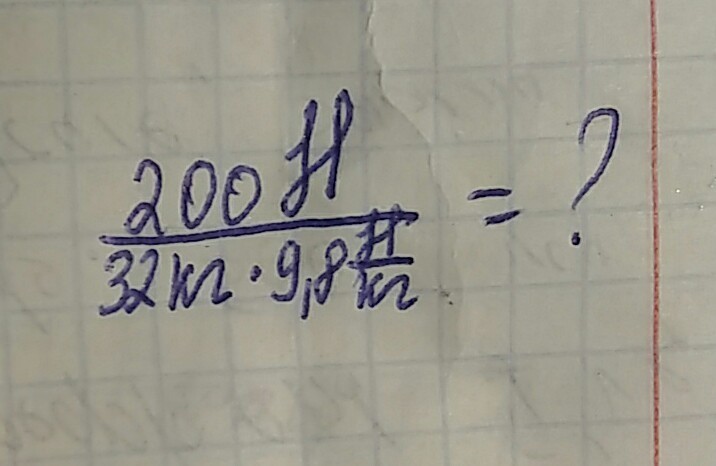 200 Н
32 кг · 9,8 Н/кг = ?